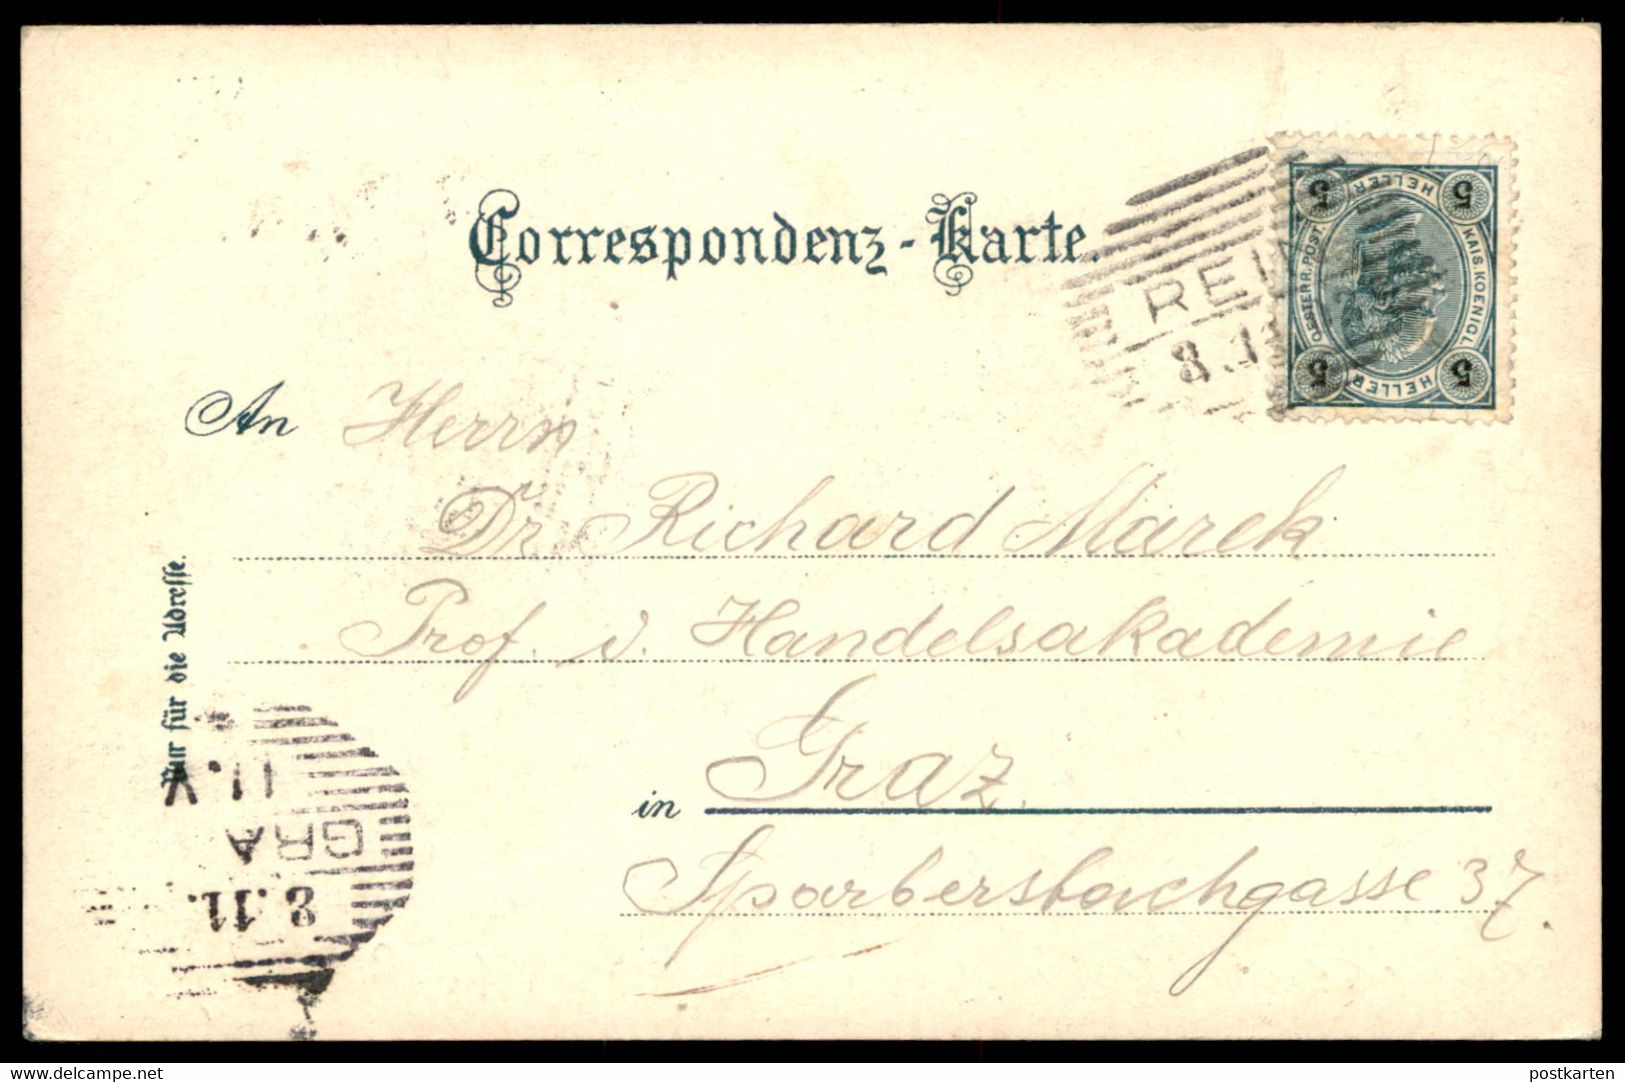 Correspondenz-Karte.
5 HELLER 5
KAIS. KOENIGL.
OESTERR. POST.
5 HELLER 5
REI
8.11
An Herrn
Dr. Richard Marek
Prof. d. Handelsakademie
in Graz.
Sparbersbachgasse 37.
Nur für die Adresse.
GRA
8.11.
delcampe.net
postkarten